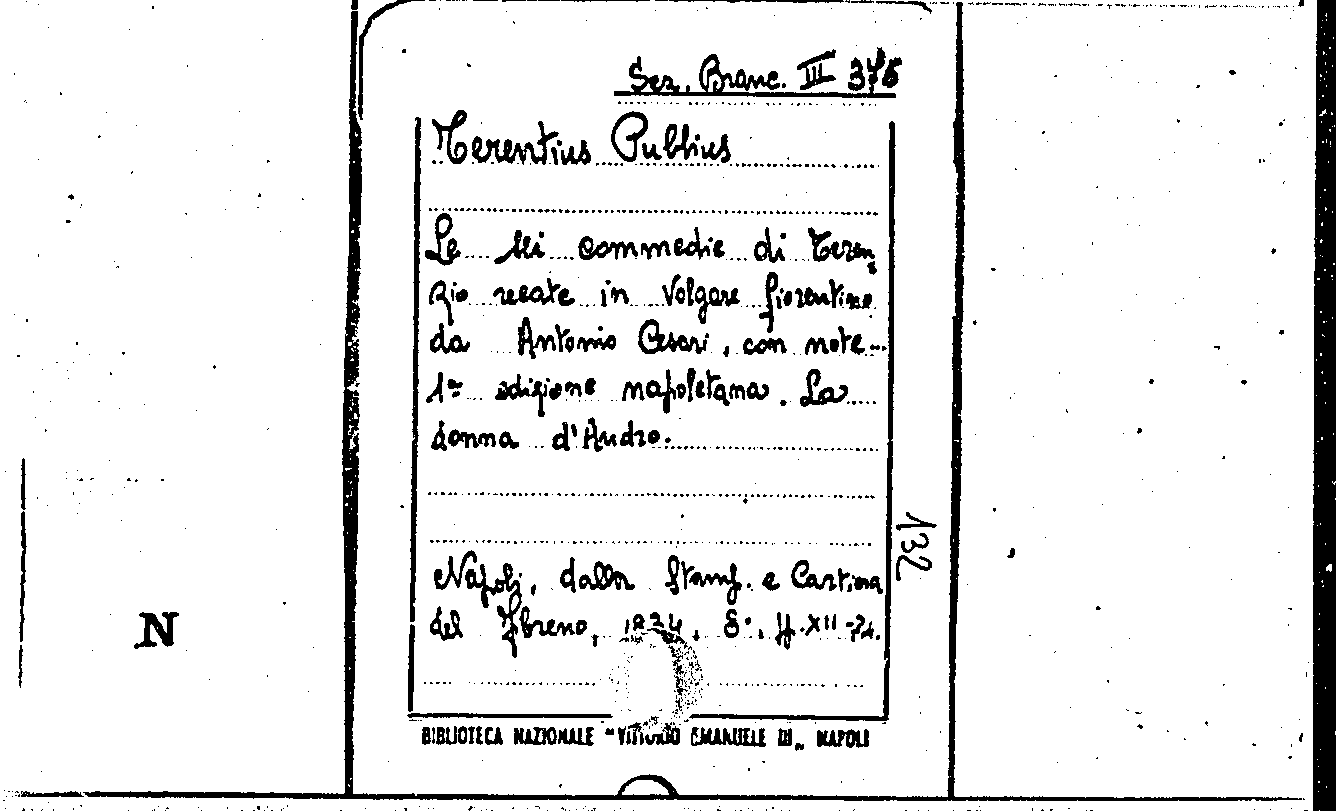 Sez. Branc. III 375
Terentius Publius
Le sei commedie di Teren=
zio recate in volgare fiorentino
da Antonio Cesari, con note...
1ª edizione napoletana. La
donna d'Andro.
132
Napoli, dalla Stamp. e Cartiera
del Fibreno, 1834, 8°, ff. XII-74.
N
BIBLIOTECA NAZIONALE "VITTORIO EMANUELE III„ NAPOLI